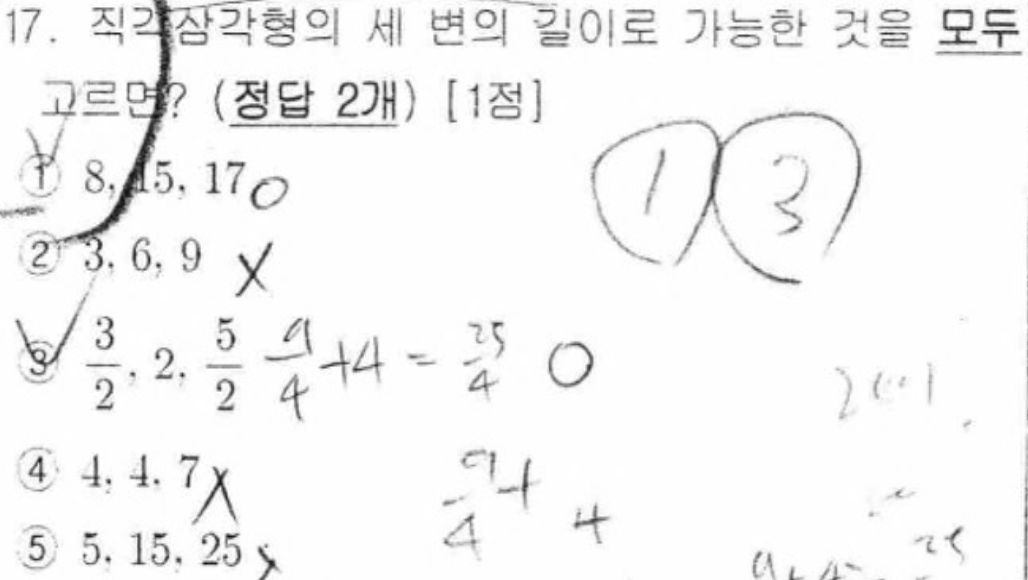 17. 직각삼각형의 세 변의 길이로 가능한 것을 모두
고르면? (정답 2개) [1점]
① 8, 15, 17 O
1 3
② 3, 6, 9 X
③ 3/2, 2, 5/2 9/4 + 4 = 25/4 O
④ 4, 4, 7 X
9/4 + 4
⑤ 5, 15, 25 X